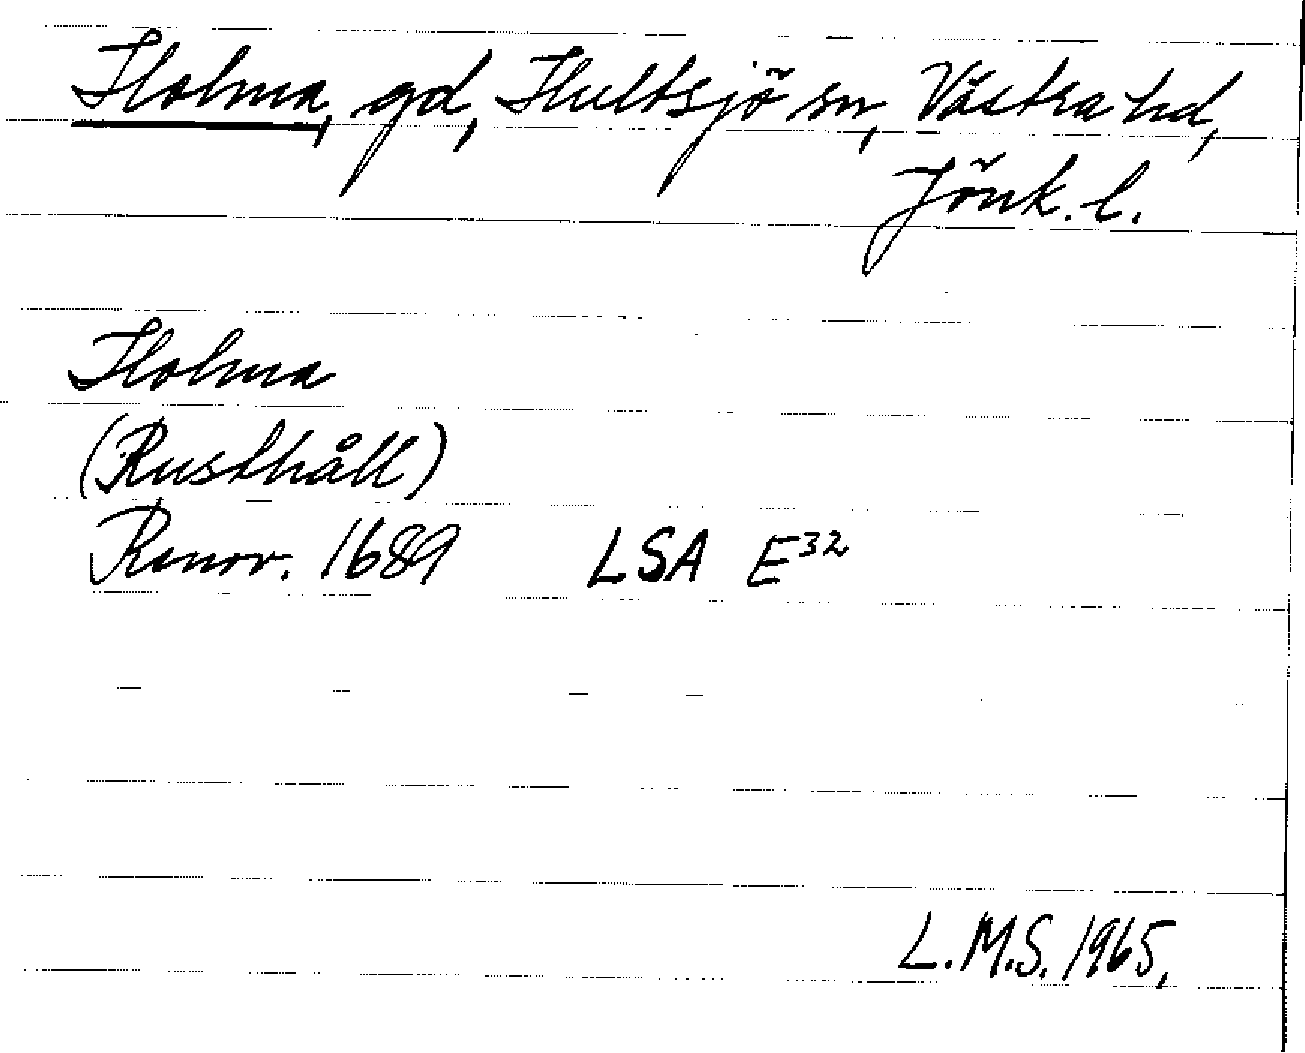 Holma, gd, Hultsjö sn, Västra hd,
Jönk. l.
Holma
(Rusthåll)
Renov. 1689 LSA E32
L.M.S. 1965.